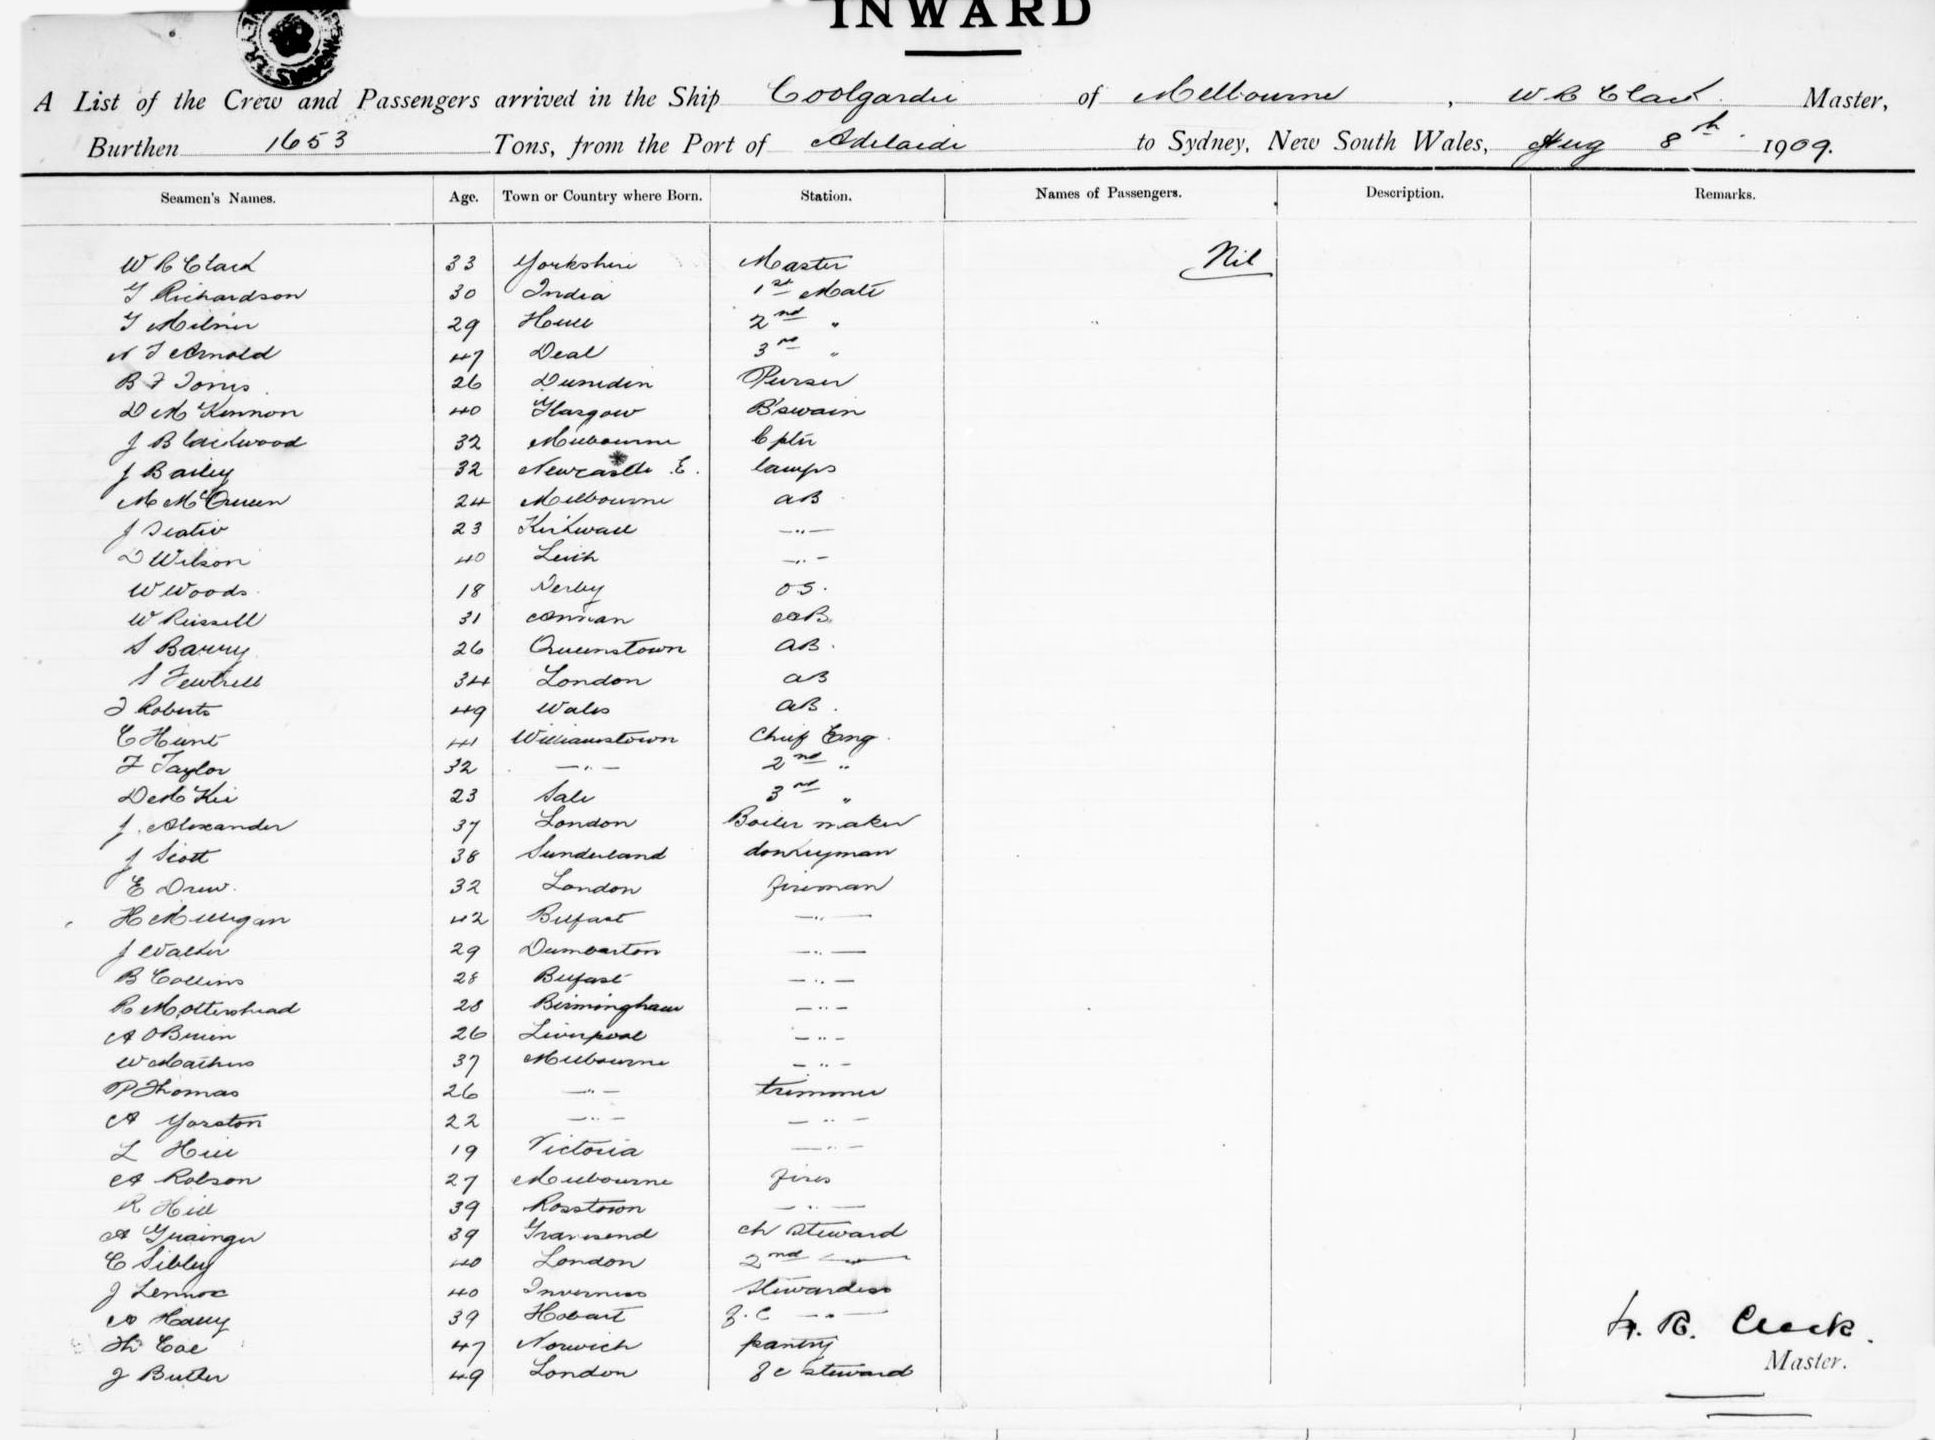 INWARD
A List of the Crew and Passengers arrived in the Ship Coolgardie of Melbourne, W R Clark Master,
Burthen 1653 Tons, from the Port of Adelaide to Sydney, New South Wales, Aug 8th 1909.
Seamen's Names. Age. Town or Country where Born. Station. Names of Passengers. Description. Remarks.
W R Clark 33 Yorkshire Master Nil
G Richardson 30 India 1st Mate
G Milner 29 Hull 2nd "
N J Arnold 47 Deal 3rd "
B F Torris 26 Dunedin Purser
D McKinnon 40 Glasgow B'swain
J Blackwood 32 Melbourne Cptr
J Bailey 32 Newcastle E. lamps
M McQueen 24 Melbourne AB
J 23 Kirkwall —"—
D Wilson 40 Leith —"—
W Woods 18 Derby OS.
W Russell 31 Annan AB.
S Barry 26 Queenstown AB.
S Fewtrell 34 London AB
J Roberts 49 Wales AB.
C Hunt 41 Williamstown Chief Eng.
F Taylor 32 —"— 2nd "
D McKie 23 Sale 3rd "
J. Alexander 37 London Boiler maker
J Scott 38 Sunderland donkeyman
E Drew. 32 London fireman
H Mulligan 42 Belfast —"—
J Walker 29 Dumbarton —"—
B Collins 28 Belfast —"—
R Mottershead 28 Birmingham —"—
A OBrien 26 Liverpool —"—
W Mathers 37 Melbourne —"—
P Thomas 26 —"— trimmer
A Yorston 22 —"— —"—
L Hill 19 Victoria —"—
A Robson 27 Melbourne fires
R Hill 39 Rosstown —"—
A Grainger 39 Gravesend ch steward
C Sibley 40 London 2nd —"—
J Lennox 40 Inverness Stewardess
39 Hobart F.C —"—
Coe 47 Norwich pantry
J Butler 49 London F C Steward
W. R. Clark.
Master.